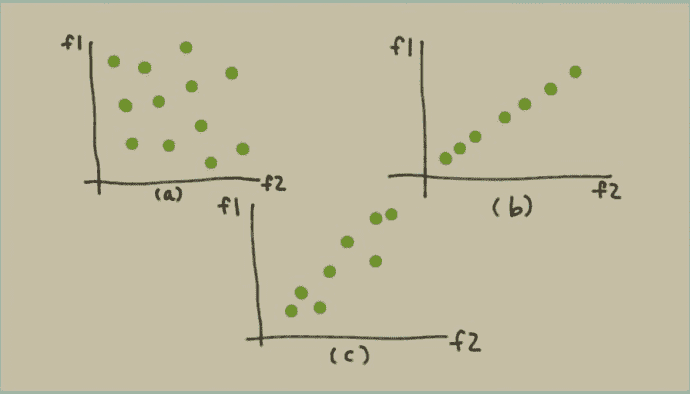 f1
f2
(a)
f1
f2
(b)
f1
f2
(c)